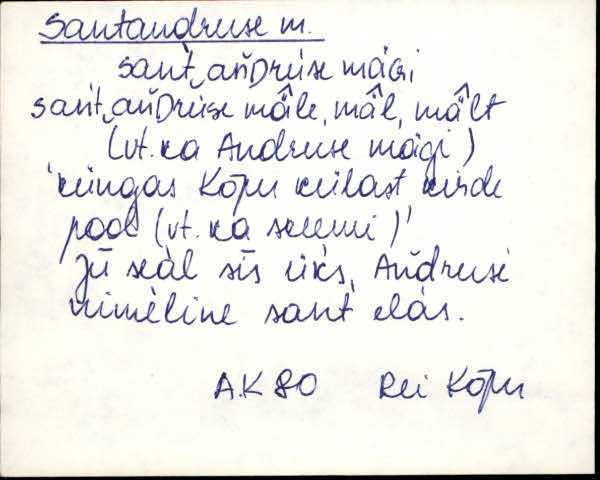 Santandruse m.
sant‿añDrùse màGi
sant‿añDrùse mâ̭le, mâ̭l, mâ̭lt
(vt. ka Andruse mägi)
'küngas Kõpu külast kirde
pool (vt. ka skeemi)'
Jū seàl sīs üks, Añdrusè
nimèline sant elàs.
A.K 80 Rei Kõpu